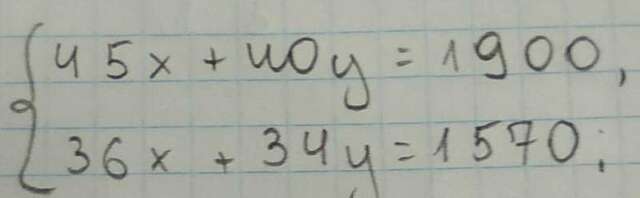 45x + 40y = 1900,
36x + 34y = 1570;